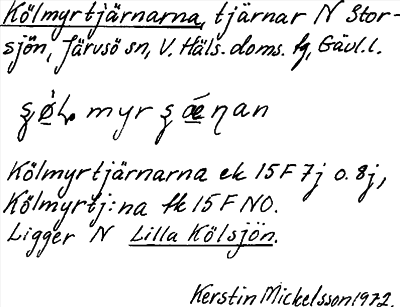 Kölmyrtjärnarna, tjärnar N Stor-
sjön, Järvsö sn, V. Häls. doms. fg, Gävl. l.
Kölmyrtjärnarna ek 15 F 7j o. 8j,
Kölmyrtj:na fk 15 F NO.
Ligger N Lilla Kölsjön.
Kerstin Mickelsson 1972.